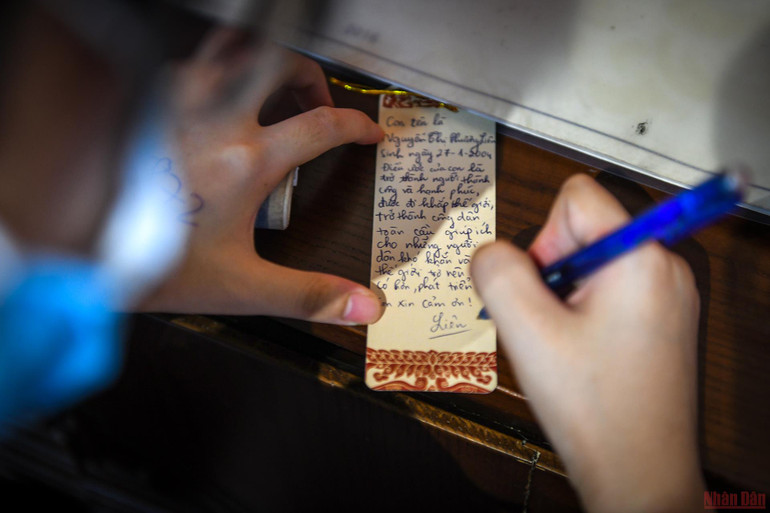 Con tên là
Nguyễn Thị Phương Liên
Sinh ngày 27-1-200
Điều ước của con là
trở thành người thành
công và hạnh phúc,
được đi khắp thế giới,
trở thành công dân
toàn cầu giúp ích
cho những người
dân khó khăn và
thế giới trở nên
có hơn, phát triển
xin cảm ơn!
Liên
Nhân Dân